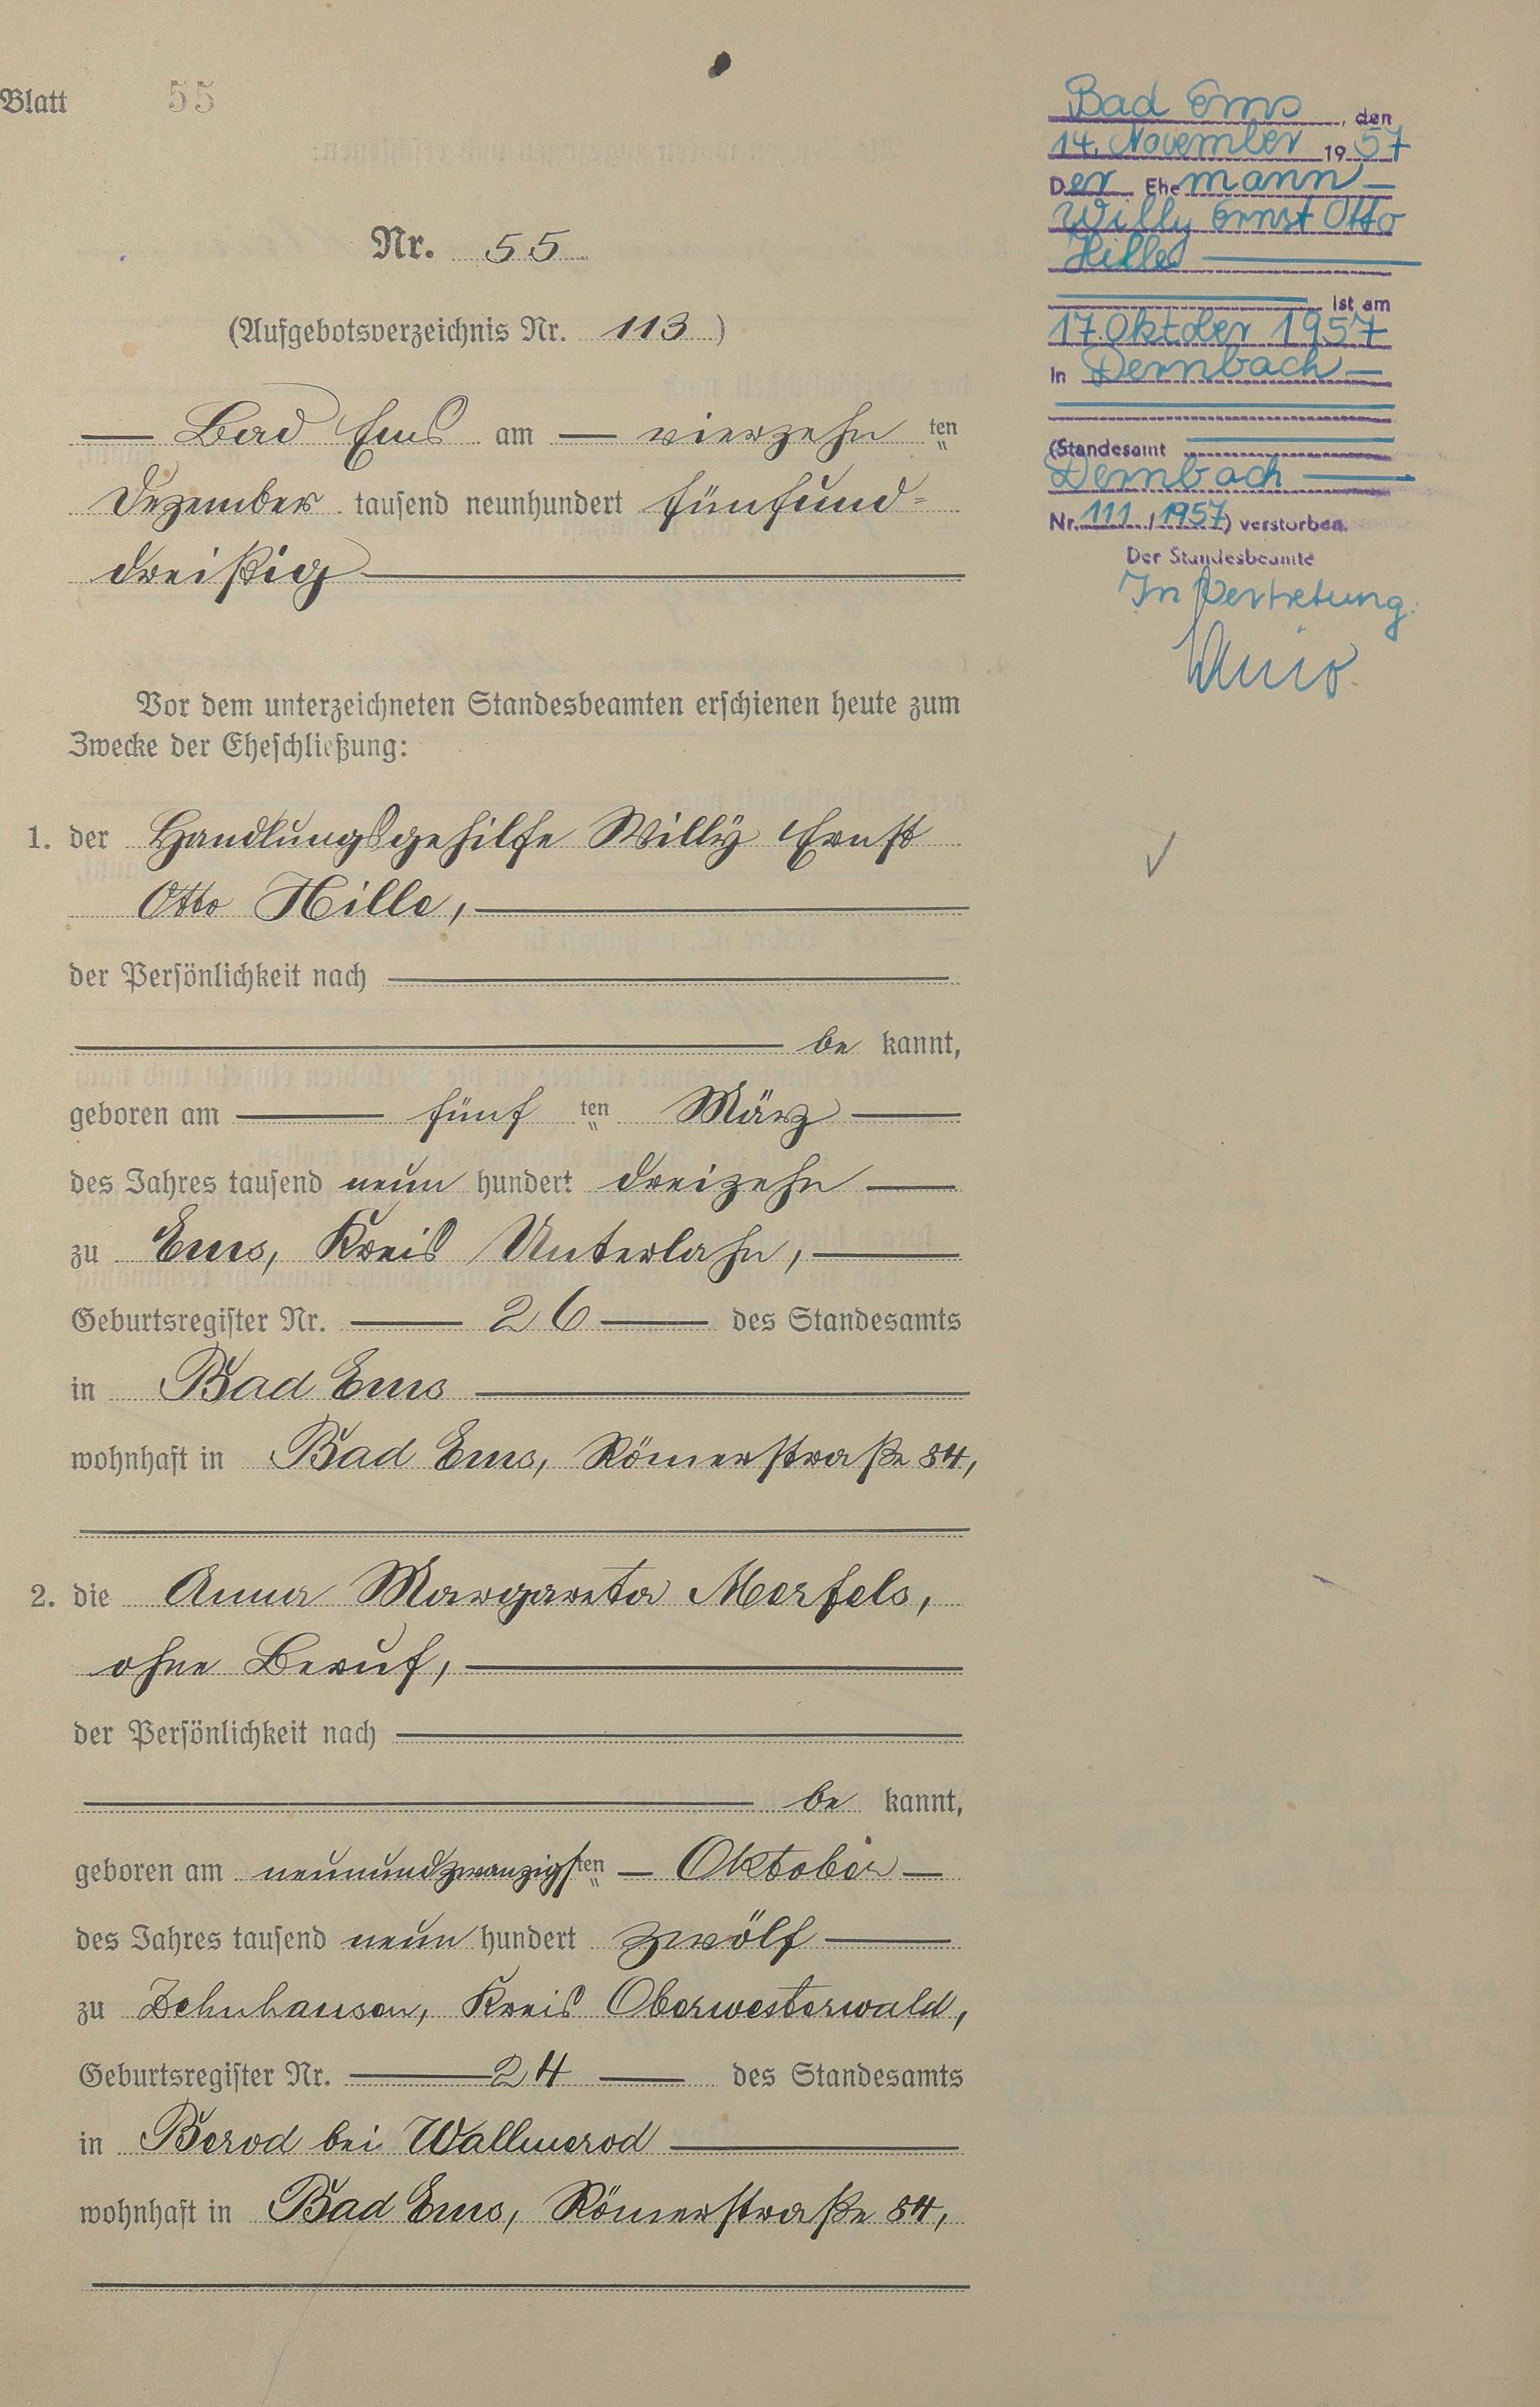 Blatt 55
Nr. 55
(Aufgebotsverzeichnis Nr. 113)
Bad Ems am vierzehn ten
Dezember tausend neunhundert fünfund=
dreißig
Vor dem unterzeichneten Standesbeamten erschienen heute zum
Zwecke der Eheschließung:
1. der Handlungsgehilfe Willy Ernst
Otto Hille,
der Persönlichkeit nach
be kannt,
geboren am fünf ten März
des Jahres tausend neun hundert dreizehn
zu Ems, Kreis Unterlahn,
Geburtsregister Nr. 26 des Standesamts
in Bad Ems
wohnhaft in Bad Ems, Römerstraße 84,
2. die Anna Margareta Merfels,
ohne Beruf,
der Persönlichkeit nach
be kannt,
geboren am neunundzwanzigsten Oktober
des Jahres tausend neun hundert zwölf
zu Zehnhausen, Kreis Oberwesterwald,
Geburtsregister Nr. 24 des Standesamts
in Berod bei Wallmerod
wohnhaft in Bad Ems, Römerstraße 84,
Bad Ems, den
14. November 1957
Der Ehemann
Willy Ernst Otto
Hille
ist am
17. Oktober 1957
in Dernbach
(Standesamt
Dernbach
Nr. 111 / 1957) verstorben.
Der Standesbeamte
In Vertretung: